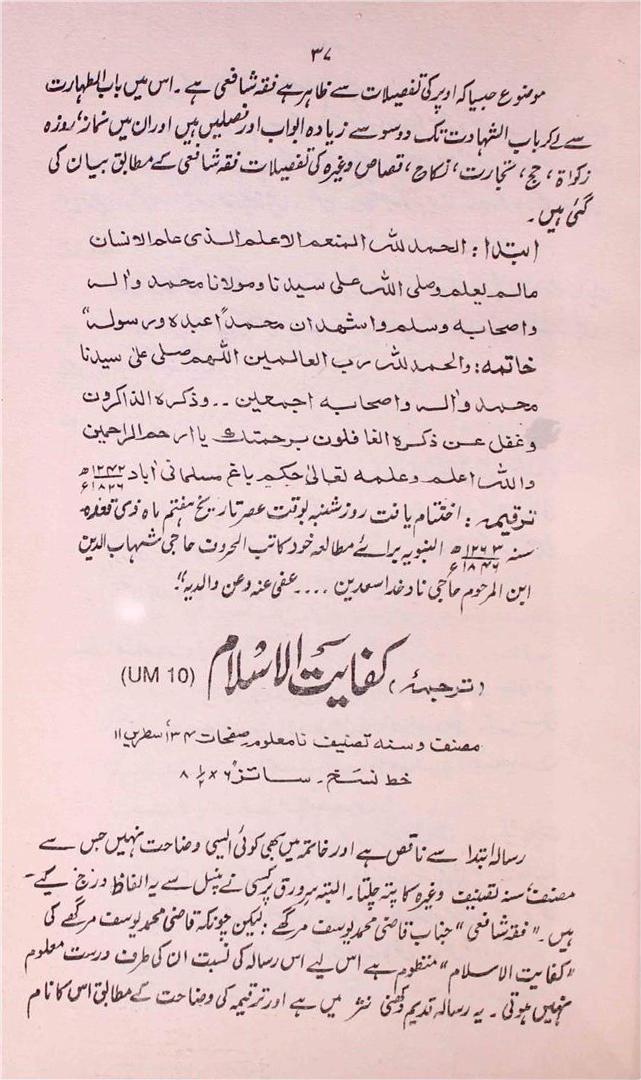 ۳۷
موضوع جیسا کہ اوپر کی تفصیلات سے ظاہر ہے فقہ شافعی ہے۔ اس میں باب الطہارت
سے لے کر باب الشہادت تک دو سو سے زیادہ ابواب اور فصلیں ہیں اور ان میں نماز، روزہ
زکواۃ، حج، تجارت، نکاح، قصاص وغیرہ کی تفصیلات فقہ شافعی کے مطابق بیان کی
گئی ہیں۔
ابتدا: الحمد للہ المنعم الاعلم الذی علم الانسان
مالم یعلم وصلی اللہ علی سیدنا ومولانا محمد والہ
واصحابہ وسلم واشھد ان محمداً عبدہ ورسولہ"
خاتمہ: والحمد للہ رب العالمین اللھم صلی علیٰ سیدنا
محمد والہ واصحابہ اجمعین .. وذکرہ الذاکرون
وغفل عن ذکرہ الغافلون برحمتک یا ارحم الراحمین
واللہ اعلم وعلمہ تعالیٰ حکیم باغ مسلمانی آباد ۱۲۴۲ھ ۱۸۲۶ء
ترقیمہ: اختتام یافت روز شنبہ بوقت عصر تاریخ ہفتم ماہ ذی قعدہ
سنہ ۱۲۶۳ھ ۱۸۴۶ء النبویہ برائے مطالعہ خود کاتب الحروف حاجی شہاب الدین
ابن المرحوم حاجی ناد خدا سعدین .... عفی عنہ وعن والدیہ"
(ترجمۂ) کفایت الاسلام (UM 10)
مصنف و سنہ تصنیف نامعلوم۔ صفحات ۱۳۴ سطریں ۱۱
خط نسخ۔ سائز ۶ × ۸ ۱/۲
رسالہ ابتدا سے ناقص ہے اور خاتمہ میں بھی کوئی ایسی وضاحت نہیں جس سے
مصنف، سنہ تصنیف وغیرہ کا پتہ چلتا۔ البتہ سرورق پر کسی نے پنسل سے یہ الفاظ درج کیے
ہیں۔ "فقہ شافعی" جناب قاضی محمد یوسف مرگھے؛ لیکن چونکہ قاضی محمد یوسف مرگھے کی
"کفایت الاسلام" منظوم ہے اس لیے اس رسالہ کی نسبت ان کی طرف درست معلوم
نہیں ہوتی۔ یہ رسالہ قدیم دکھنی نثر میں ہے اور ترقیمہ کی وضاحت کے مطابق اس کا نام